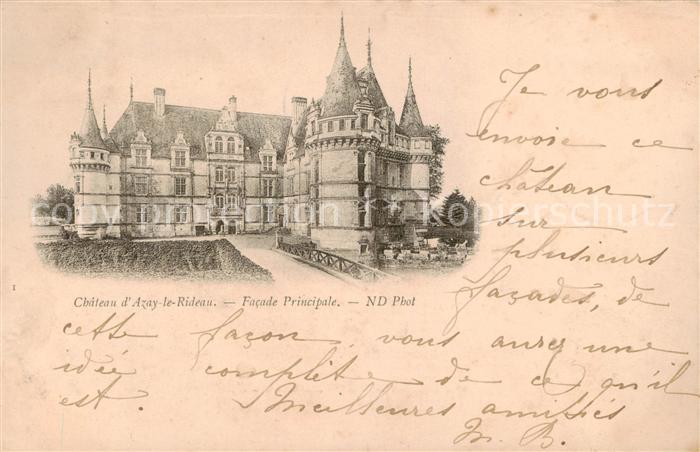 Je vous
envoie ce
château
sur
plusieurs
façades, de
1
Château d'Azay-le-Rideau. — Façade Principale. — ND Phot
cette façon, vous aurez une
idée complète de ce qu'il
est. Meilleures amitiés
M. B.
copyright kiepenschutz